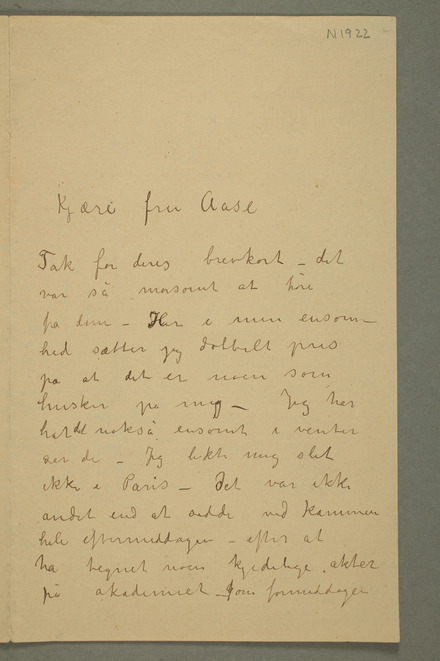 N 1922
Kjære fru Aase
Tak for deres brevkort – det
var så morsomt at høre
fra dem – Her i min ensom-
hed sætter jeg dobbelt pris
på at det er noen som
husker på mig – Jeg har
hat det nokså ensomt i vinter
ser de – Jeg likte mig slet
ikke i Paris – Det var ikke
andet end at sidde ved kaminen
hele eftermiddagen – efter at
ha tegnet noen kjedelige akter
på akademiet – om formiddagen